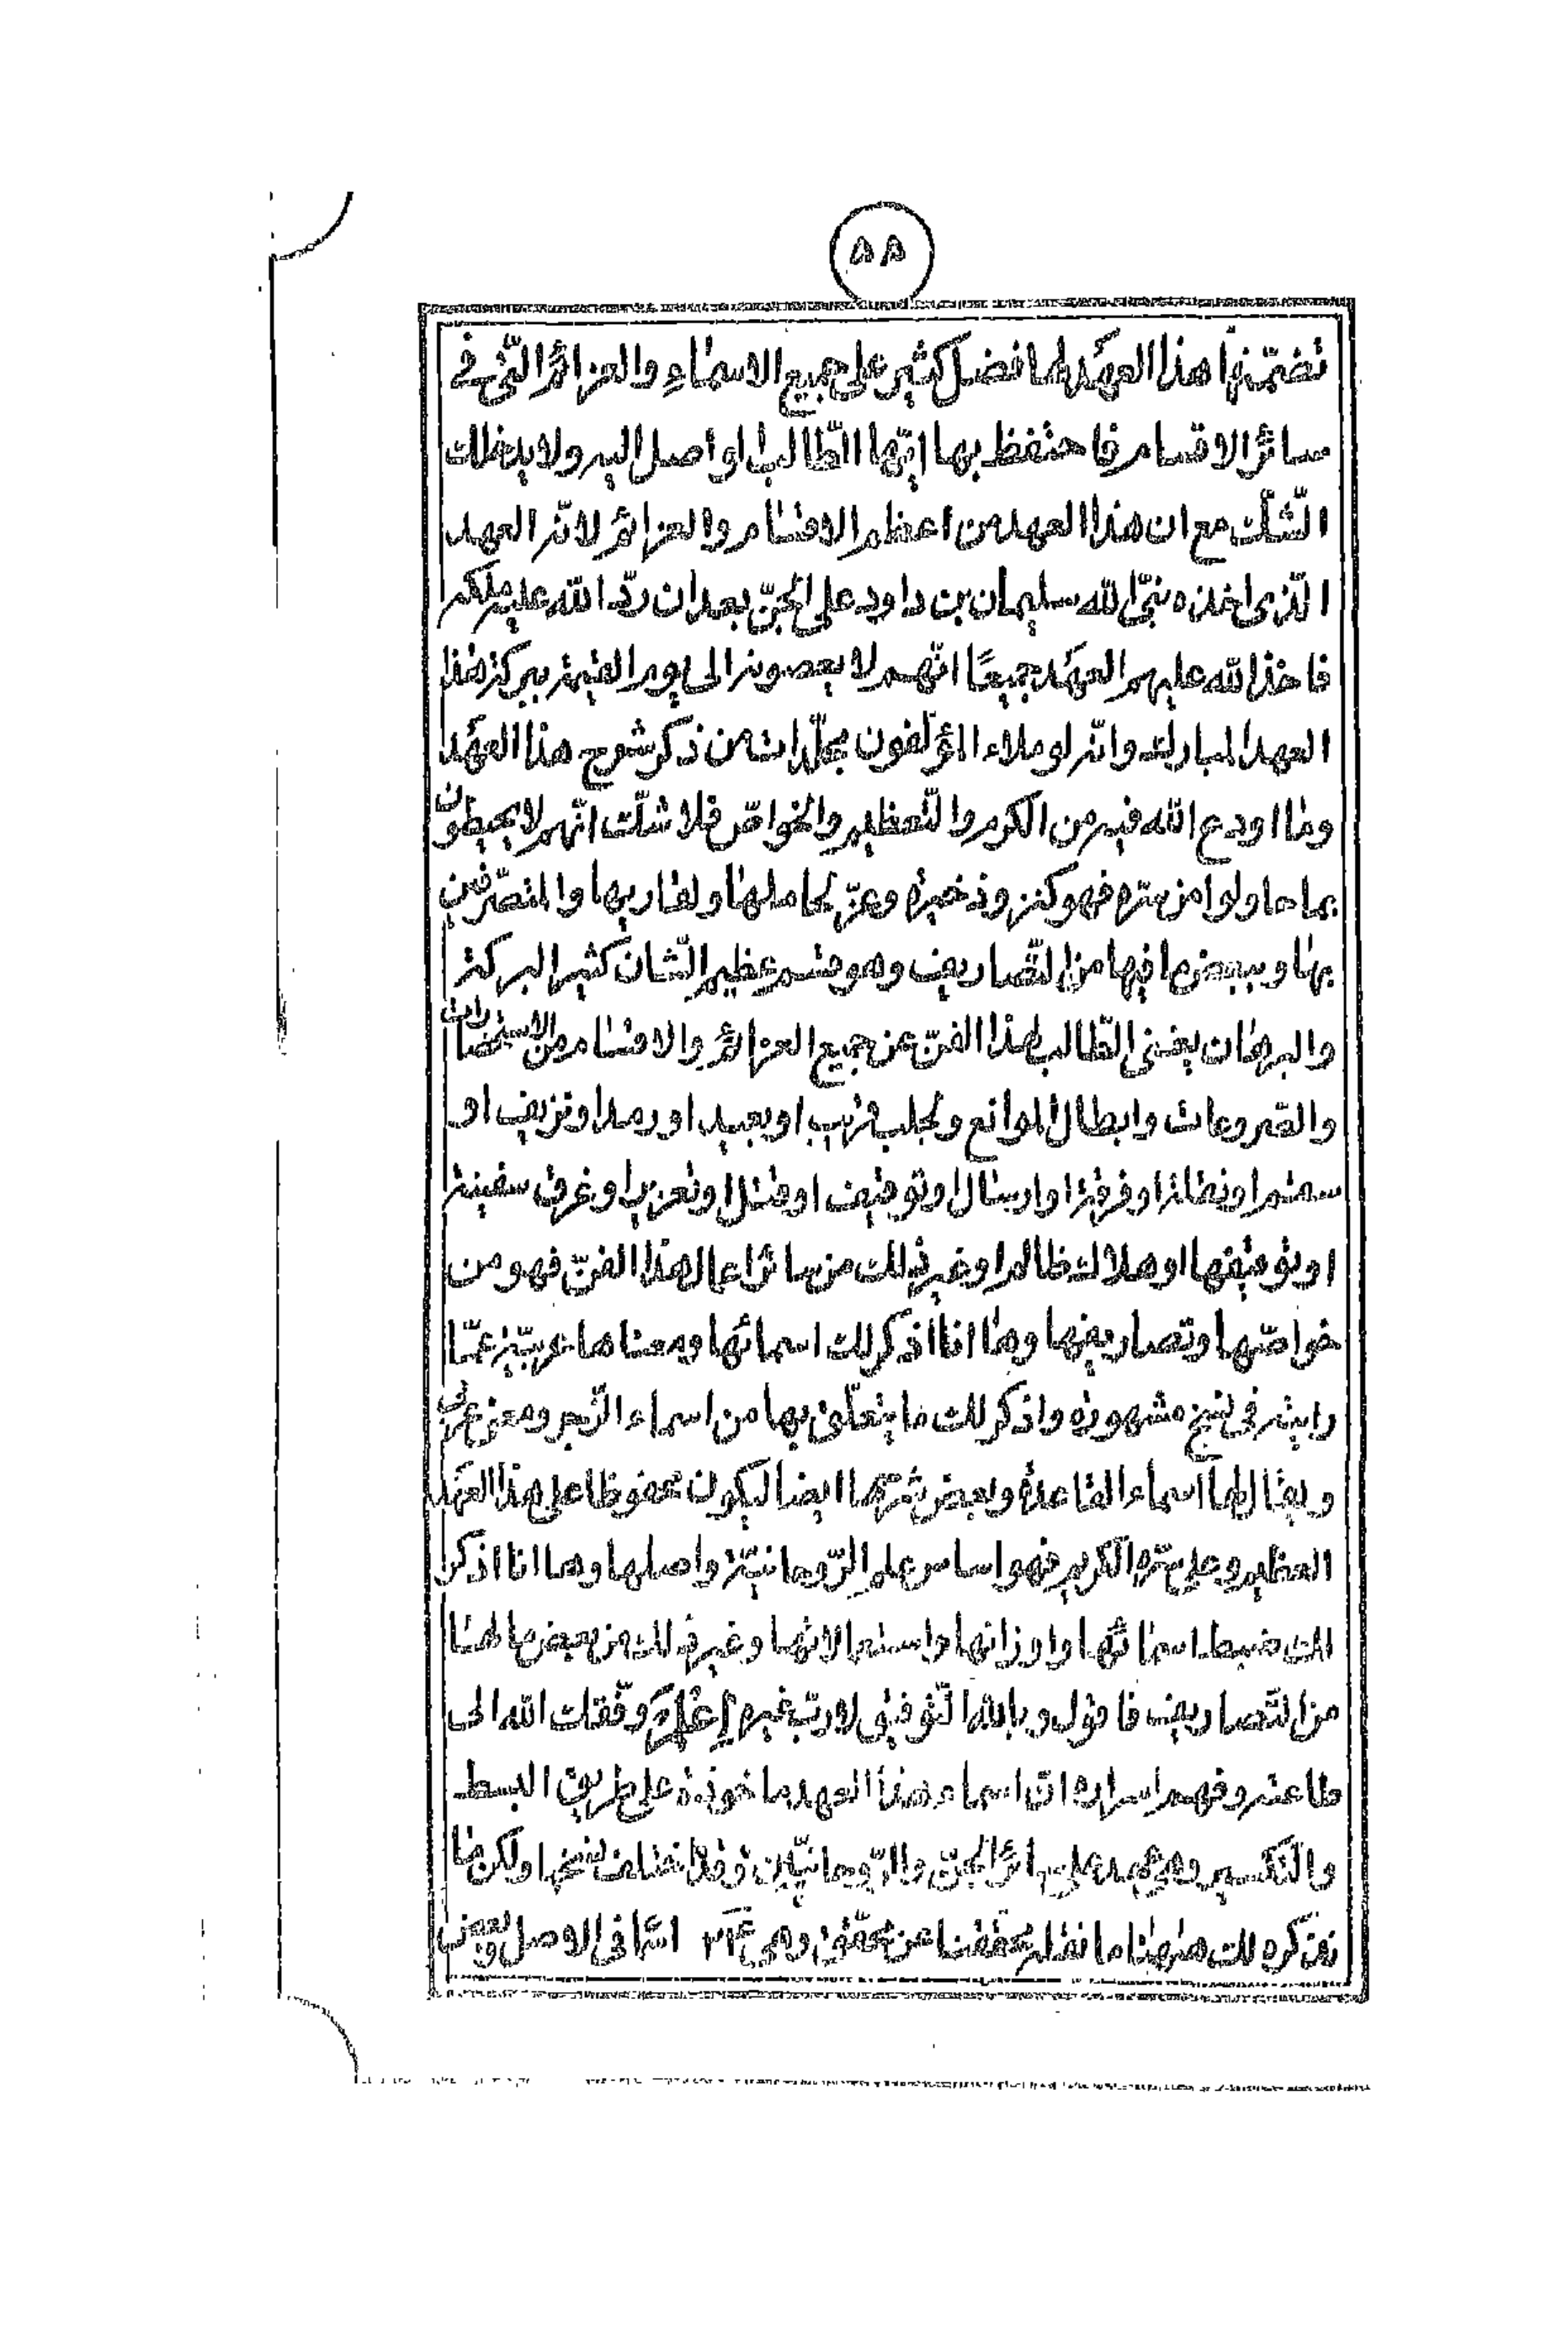 ۵۸
تضمّنها هذا العهد لها فضل كثير على جميع الاسماء والعزائم الّتى فى
سائر الاقسام فاحتفظ بها ايّها الطّالب الواصل اليه ولا يدخلك
الشّكّ مع ان هذا العهد من اعظم الاقسام والعزائم لانّه العهد
الّذى اخذه نبىّ الله سليمان بن داود على الجنّ بعد ان ردّ الله عليه ملكه
فاخذ الله عليهم العهد جميعًا انّهم لا يعصونه الى يوم القيمة ببركة هذا
العهد المبارك وانّه لو ملاء المؤلّفون مجلّدات من ذكر شروح هذا العهد
وما اودع الله فيه من الكرم والتّعظيم والخواصّ فلا شكّ انّهم لا يحيطون
بما حاولوا من سرّه فهو كنز وذخيرة وعزّ لحاملها ولقاريها والمتصرّفين
بها وببعض ما فيها من التّصاريف وهو قسم عظيم الشّان كثير البركة
والبرهان يغنى الطّالب لهذا الفنّ عن جميع العزائم والاقسام من الاستحضارات
والصّروعات وابطال الموانع ولجلب قريب او بعيد او رمد او نزيف او
سقم او نقلة او فرقة او ارسال او توقيف او قتل او تعذيب او غرق سفينة
او توقيفها او هلاك ظالم او غير ذلك من سائر اعمال هذا الفنّ فهو من
خواصّها وتصاريفها وها انا اذكر لك اسمائها ومعناها عربيّة عمّا
رايته فى نسخ مشهورة واذكر لك ما يتعلّق بها من اسماء الزّجر ومعنى عربى
ويقال لها اسماء القاعدة وبعض شرحها ايضا ليكون محفوظا على هذا العهد
العظيم وعلى سرّه الكريم فهو اساس علم الرّوحانيّة واصلها وها انا اذكر
لك ضبط اسمائها واوزانها واستعمالاتها وغير ذلك من بعض ما لها
من التّصاريف فاقول وبالله التّوفيق لا ربّ غيره اِعْلَمْ وفّقك الله الى
طاعته وفهم اسراره انّ اسماء هذا العهد ماخوذة على طريق البسط
والتّكسير وهى عهد على سائر الجنّ والرّوحانيّين وقد اختلف نسخها ولكن ما
نذكره لك هيهنا ما نقله محقّقنا عن محقّق وهى ۲۴ اسما فى الاصل وبعض